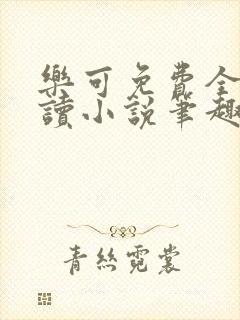 樂可免費全
讀小說筆趣
青絲霓裳